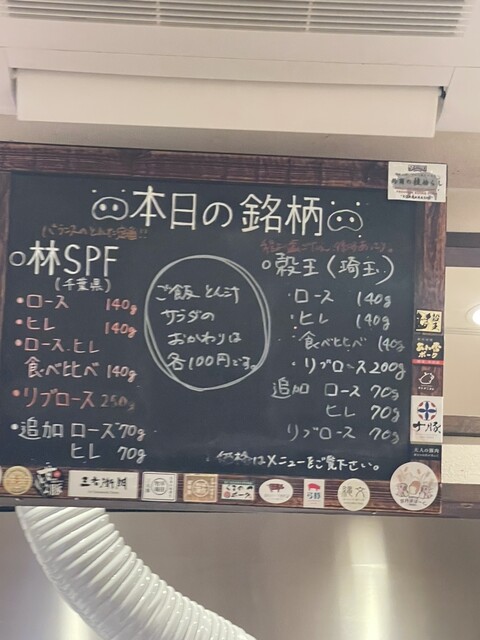 本日の銘柄
林SPF
(千葉県)
・ロース 140g
・ヒレ 140g
・ロース・ヒレ
食べ比べ 140g
・リブロース 250g
・追加 ロース 70g
ヒレ 70g
ご飯 とん汁
サラダの
おかわりは
各100円です。
穀王(埼玉)
・ロース 140g
・ヒレ 140g
・食べ比べ 140g
・リブロース 200g
追加 ロース 70g
ヒレ 70g
リブロース 70g
価格はメニューをご覧下さい。